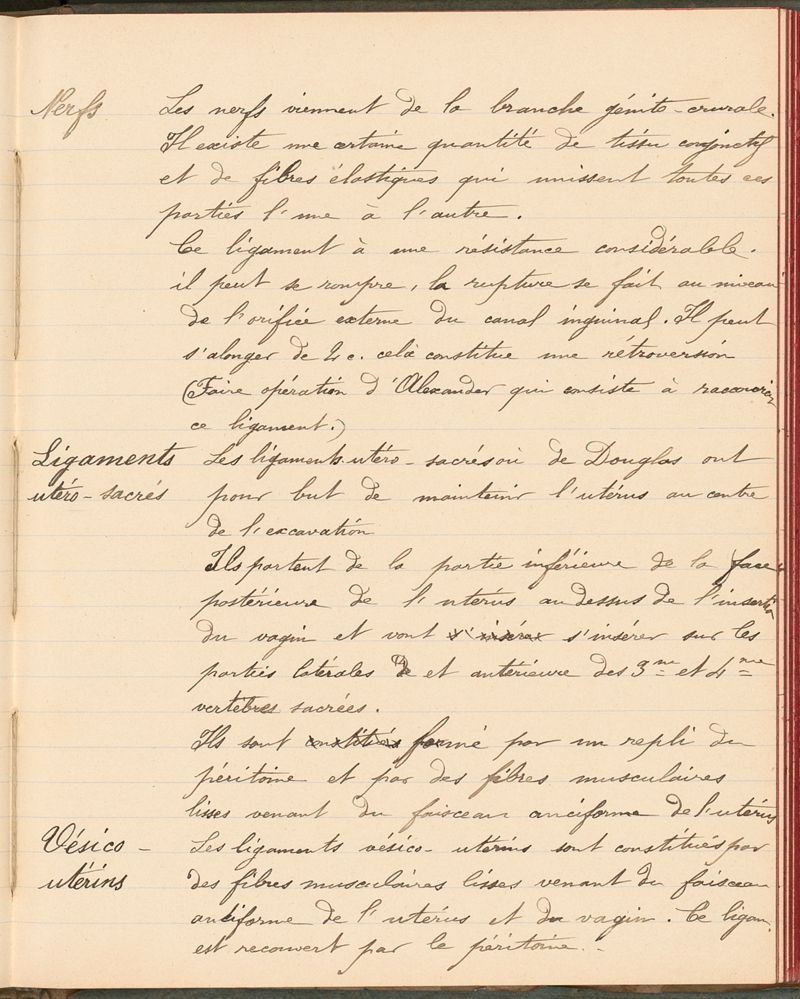 Nerfs Les nerfs viennent de la branche génito-crurale.
Il existe une certaine quantité de tissu conjonctif
et de fibres élastiques qui unissent toutes ces
parties l'une à l'autre.
Ce ligament à une résistance considérable.
il peut se rompre, la rupture se fait au niveau
de l'orifice externe du canal inguinal. Il peut
s'alonger de 2 c. celà constitue une rétroversion
(Faire opération d'Alexander qui consiste à raccourcir
ce ligament.)
Ligaments Les ligaments utéro-sacrés ou de Douglas ont
utéro-sacrés pour but de maintenir l'utérus au centre
de l'excavation
Ils partent de la partie inférieure de la face
postérieure de l'utérus au dessus de l'insertion
du vagin et vont s'insérer s'insérer sur les
parties latérales et antérieure des 3me et 4me
vertèbres sacrées.
Ils sont constitués formé par un repli du
péritoine et par des fibres musculaires
lisses venant du faisceau anciforme de l'utérus
Vésico- Les ligaments vésico-utérins sont constitués par
utérins des fibres musculaires lisses venant du faisceau
anciforme de l'utérus et du vagin. Ce ligam.
est recouvert par le péritoine.